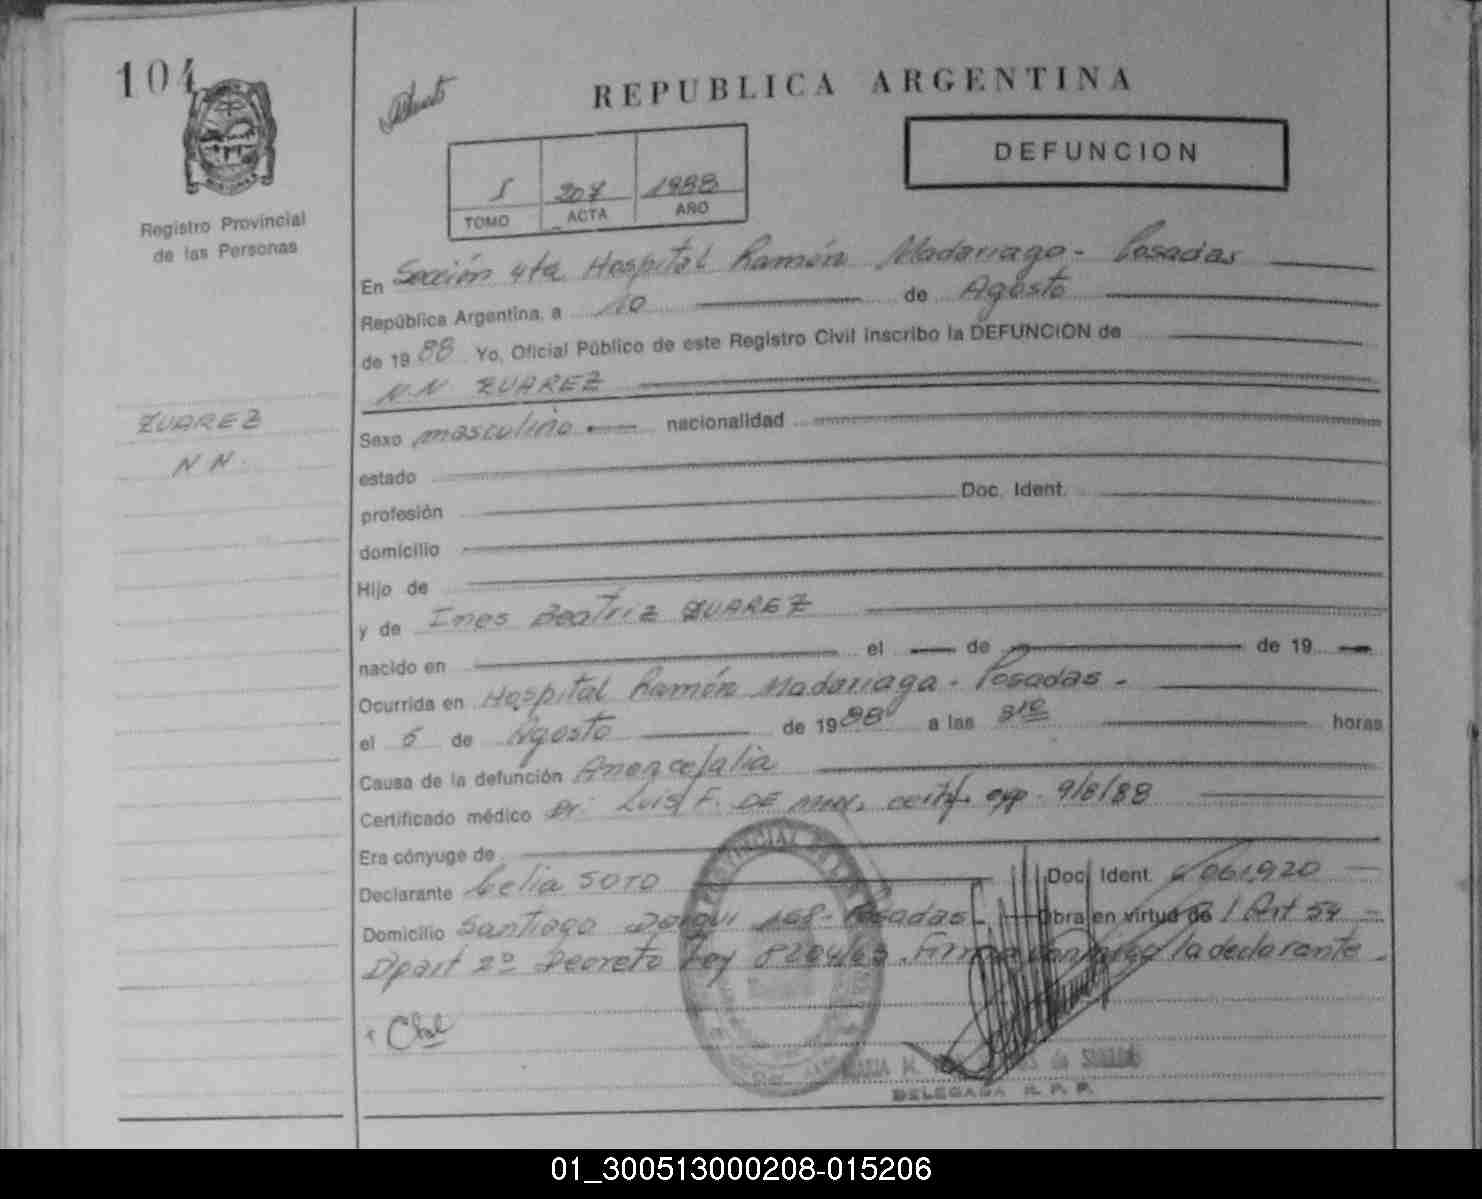 104
REPUBLICA ARGENTINA
DEFUNCION
I 207 1988
TOMO ACTA AÑO
Registro Provincial
de las Personas
En Sección 4ta Hospital Ramón Madariaga - Posadas
República Argentina, a 10 de Agosto
de 1988 Yo, Oficial Público de este Registro Civil inscribo la DEFUNCION de
N.N ZUAREZ
ZUAREZ
N N.
Sexo masculino nacionalidad
estado
profesión Doc. Ident.
domicilio
Hijo de
y de Ines Beatriz ZUAREZ
nacido en el de de 19
Ocurrida en Hospital Ramón Madariaga - Posadas -
el 6 de Agosto de 1988 a las horas
Causa de la defunción Anencefalia
Certificado médico Dr. Luis F. DE certif. exp. 9/8/88
Era cónyuge de
Declarante Celia SOTO Doc. Ident. 061.920
Domicilio Santiago Derqui 168 - Posadas - Obra en virtud de l Art 54
Dpart 2º Decreto Ley 8204/63. Firma la declarante.
DELEGADA R. P. P.
01_300513000208-015206